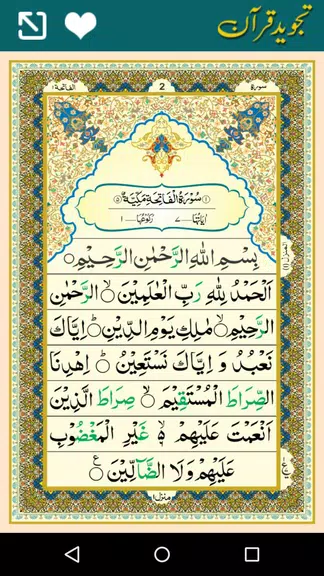 تجوید قرآن
سورة 2 الفاتحة ١
سُوْرَةُ الْفَاتِحَةِ مَكِّيَّةٌ
اٰیَاتُهَا ٧ رُكُوْعُهَا ١
بِسْمِ اللّٰهِ الرَّحْمٰنِ الرَّحِيْمِ
اَلْحَمْدُ لِلّٰهِ رَبِّ الْعٰلَمِيْنَ ۙ الرَّحْمٰنِ
الرَّحِيْمِ ۙ مٰلِكِ يَوْمِ الدِّيْنِ ؕ اِيَّاكَ
نَعْبُدُ وَ اِيَّاكَ نَسْتَعِيْنُ ؕ اِهْدِنَا
الصِّرَاطَ الْمُسْتَقِيْمَ ۙ صِرَاطَ الَّذِيْنَ
اَنْعَمْتَ عَلَيْهِمْ ۙ غَيْرِ الْمَغْضُوْبِ
عَلَيْهِمْ وَلَا الضَّآلِّيْنَ
منزل ١